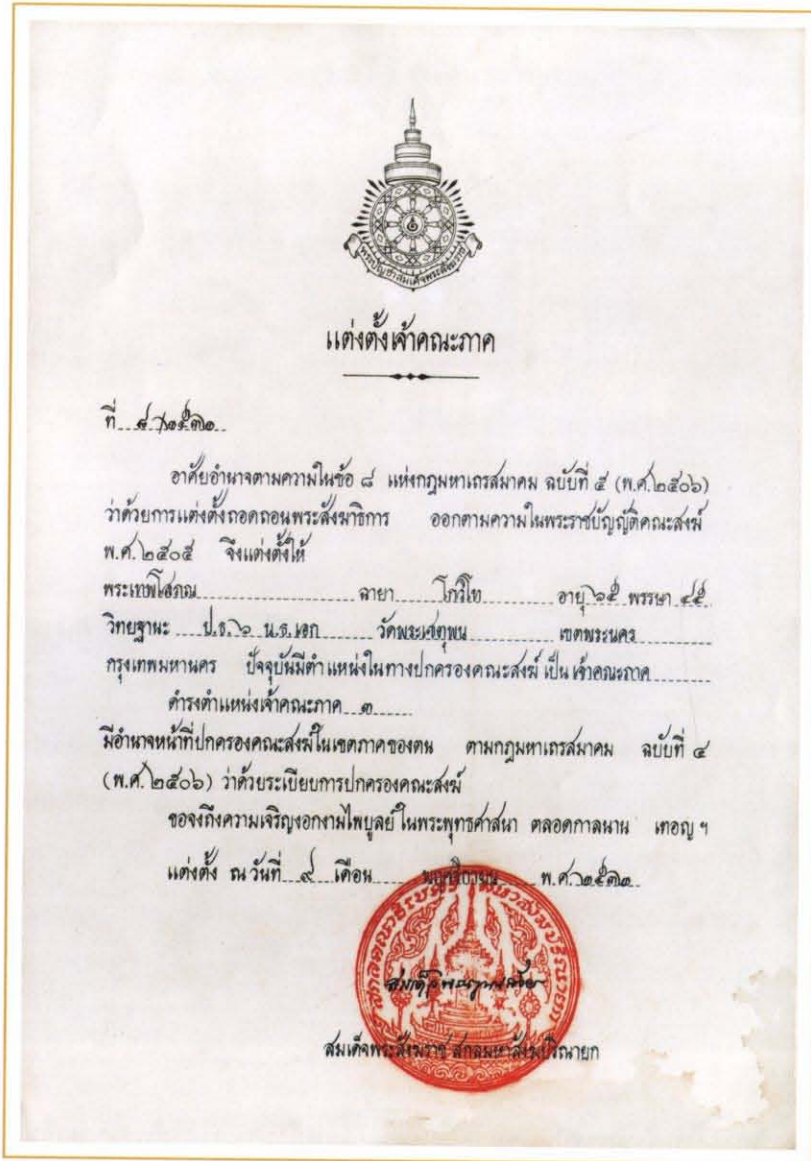 พระบัญชาสมเด็จพระสังฆราช
แต่งตั้งเจ้าคณะภาค
ที่ ๘/๒๕๓๒
อาศัยอำนาจตามความในข้อ ๘ แห่งกฎมหาเถรสมาคม ฉบับที่ ๕ (พ.ศ.๒๕๐๖)
ว่าด้วยการแต่งตั้งถอดถอนพระสังฆาธิการ ออกตามความในพระราชบัญญัติคณะสงฆ์
พ.ศ.๒๕๐๕ จึงแต่งตั้งให้
พระเทพโสภณ ฉายา โกวิโท อายุ ๖๕ พรรษา ๔๕
วิทยฐานะ ป.ธ.๖ น.ธ.เอก วัดพระเชตุพน เขตพระนคร
กรุงเทพมหานคร ปัจจุบันมีตำแหน่งในทางปกครองคณะสงฆ์ เป็น เจ้าคณะภาค
ดำรงตำแหน่งเจ้าคณะภาค ๓
มีอำนาจหน้าที่ปกครองคณะสงฆ์ในเขตภาคของตน ตามกฎมหาเถรสมาคม ฉบับที่ ๔
(พ.ศ.๒๕๐๖) ว่าด้วยระเบียบการปกครองคณะสงฆ์
ขอจงถึงความเจริญงอกงามไพบูลย์ ในพระพุทธศาสนา ตลอดกาลนาน เทอญ ฯ
แต่งตั้ง ณ วันที่ ๙ เดือน พฤศจิกายน พ.ศ.๒๕๓๒
สมเด็จพระสังฆราช สกลมหาสังฆปริณายก